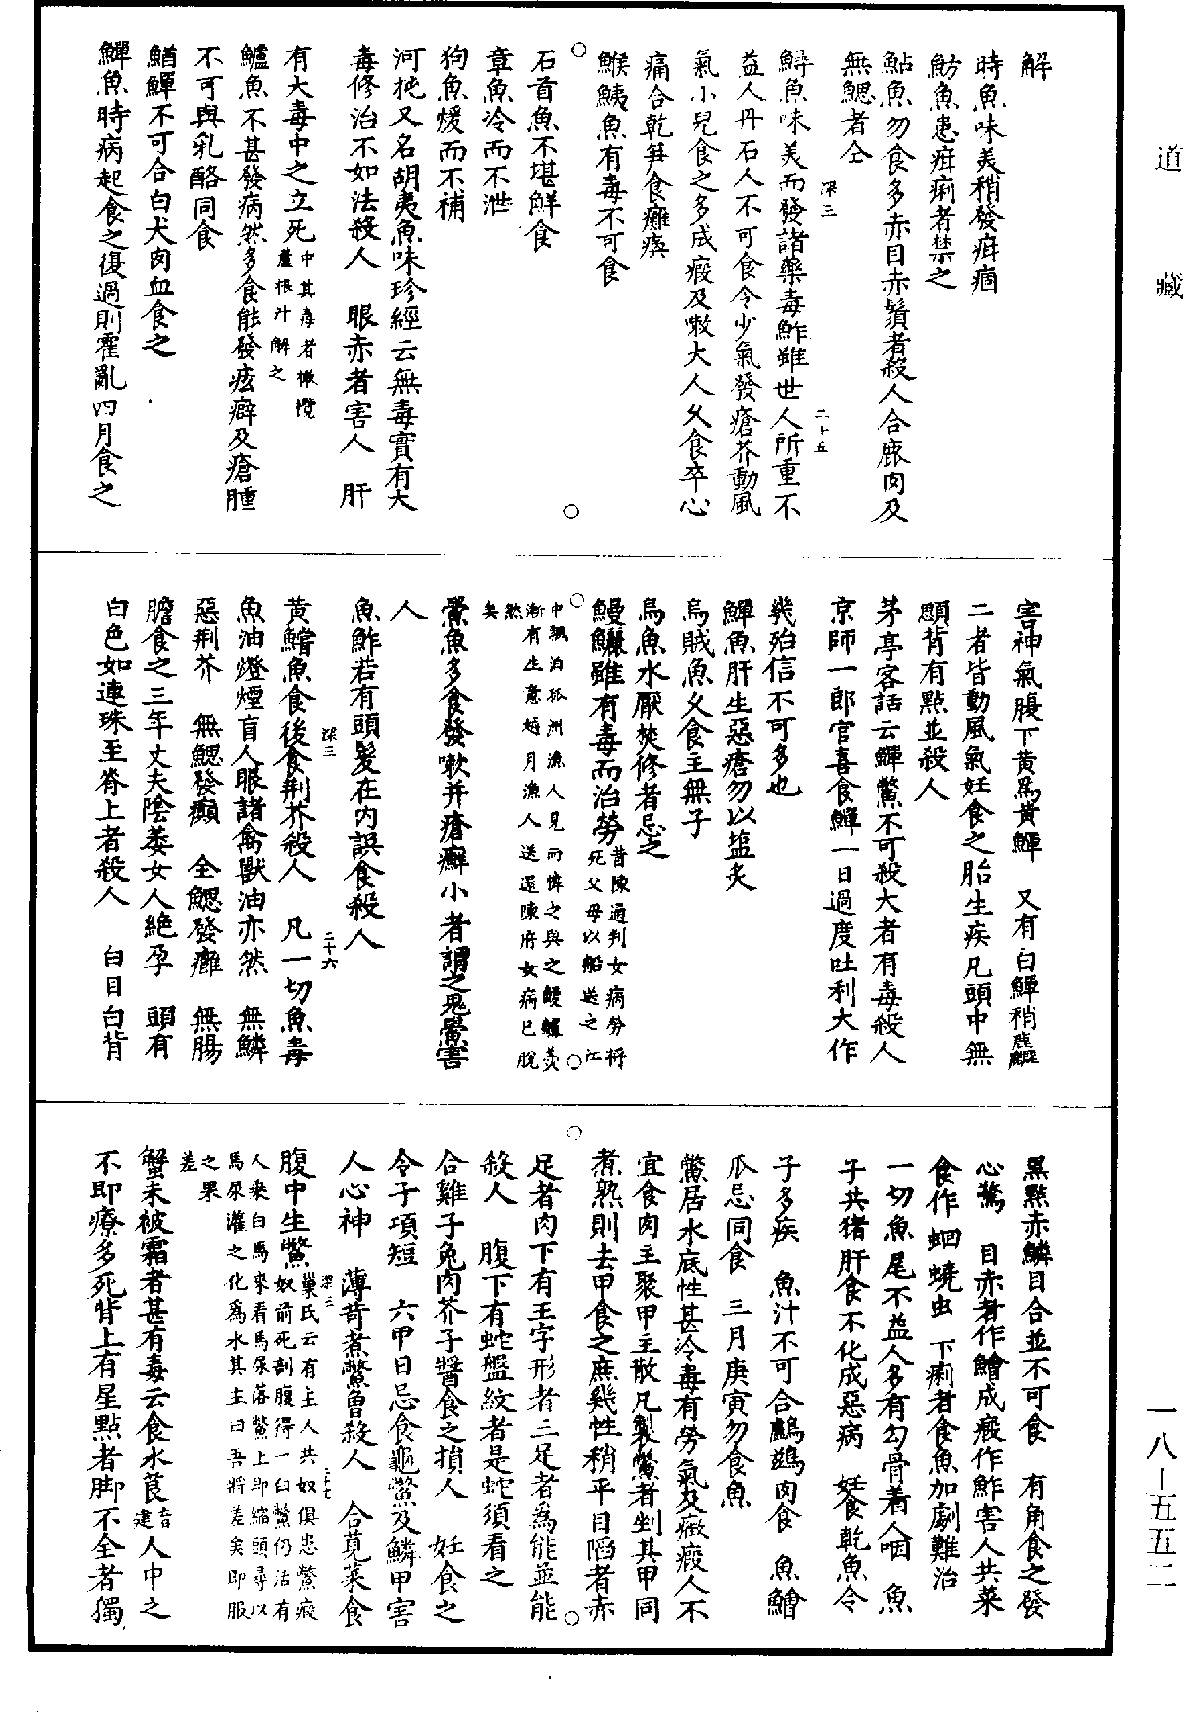 道藏
解
時魚味美稍發疳痼
魴魚患疳痢者禁之
鮎魚勿食多赤目赤鬚者殺人合鹿肉及
無鰓者仝
深三
二十五
鱘魚味美而發諸藥毒鮓雖世人所重不
益人丹石人不可食令少氣發瘡疥動風
氣小兒食之多成瘕及嗽大人久食卒心
痛合乾笋食癱瘓
鯸鮧魚有毒不可食
石首魚不堪鮮食
章魚冷而不泄
狗魚煖而不補
河㹠又名胡夷魚味珍經云無毒實有大
毒修治不如法殺人 眼赤者害人 肝
有大毒中之立死中其毒者橄欖
蘆根汁解之
鱸魚不甚發病然多食能發痃癖及瘡腫
不可與乳酪同食
鰌鱓不可合白犬肉血食之
鱓魚時病起食之復過則霍亂四月食之
害神氣腹下黃爲黃鱓 又有白鱓稍麤
二者皆動風氣妊食之胎生疾凡頭中無
顋背有點並殺人
茅亭客話云鱓鱉不可殺大者有毒殺人
京師一郎官喜食鱓一日過度吐利大作
幾殆信不可多也
鱓魚肝生惡瘡勿以盐炙
烏賊魚久食主無子
烏魚水厭焚修者忌之
鰻鱺雖有毒而治勞昔陳通判女病勞將
死父母以船送之江
中飄泊孤洲漁人見而憐之與之鰻鱺羹
漸有生意越月漁人送還陳府女病已脫
然
矣
鱟魚多食發嗽并瘡癬小者謂之鬼鱟害
人
魚鮓若有頭髮在內誤食殺人
深三
二十六
黃鱨魚食後食荆芥殺人 凡一切魚毒
魚油燈煙盲人眼諸禽獸油亦然 無鱗
惡荆芥 無鰓發癲 全鰓發癱 無腸
膽食之三年丈夫陰萎女人絶孕 頭有
白色如連珠至脊上者殺人 白目白背
黑點赤鱗目合並不可食 有角食之發
心驚 目赤者作鱠成瘕作鮓害人共菜
食作蛔蟯虫 下痢者食魚加劇難治
一切魚尾不益人多有勾骨着人咽 魚
子共猪肝食不化成惡病 妊食乾魚令
子多疾 魚汁不可合鸕鷀肉食 魚鱠
瓜忌同食 三月庚寅勿食魚
鱉居水底性甚冷毒有勞氣及癥瘕人不
宜食肉主聚甲主散凡製鱉者剉其甲同
煮熟則去甲食之庶幾性稍平目陷者赤
足者肉下有王字形者三足者爲能並能
殺人 腹下有蛇盤紋者是蛇須看之
合雞子兔肉芥子醬食之損人 妊食之
令子項短 六甲日忌食龜鱉及鱗甲害
人心神 薄荷煮鱉曾殺人 合莧菜食
深三
二十七
腹中生鱉巢氏云有主人共奴俱患鱉瘕
奴前死剖腹得一白鱉仍活有
人乘白馬來看馬尿落鱉上即縮頭尋以
馬尿灌之化爲水其主曰吾將差矣即服
之果
差
蟹未被霜者甚有毒云食水莨音建人中之
不即療多死背上有星點者脚不全者獨
一八—五五二